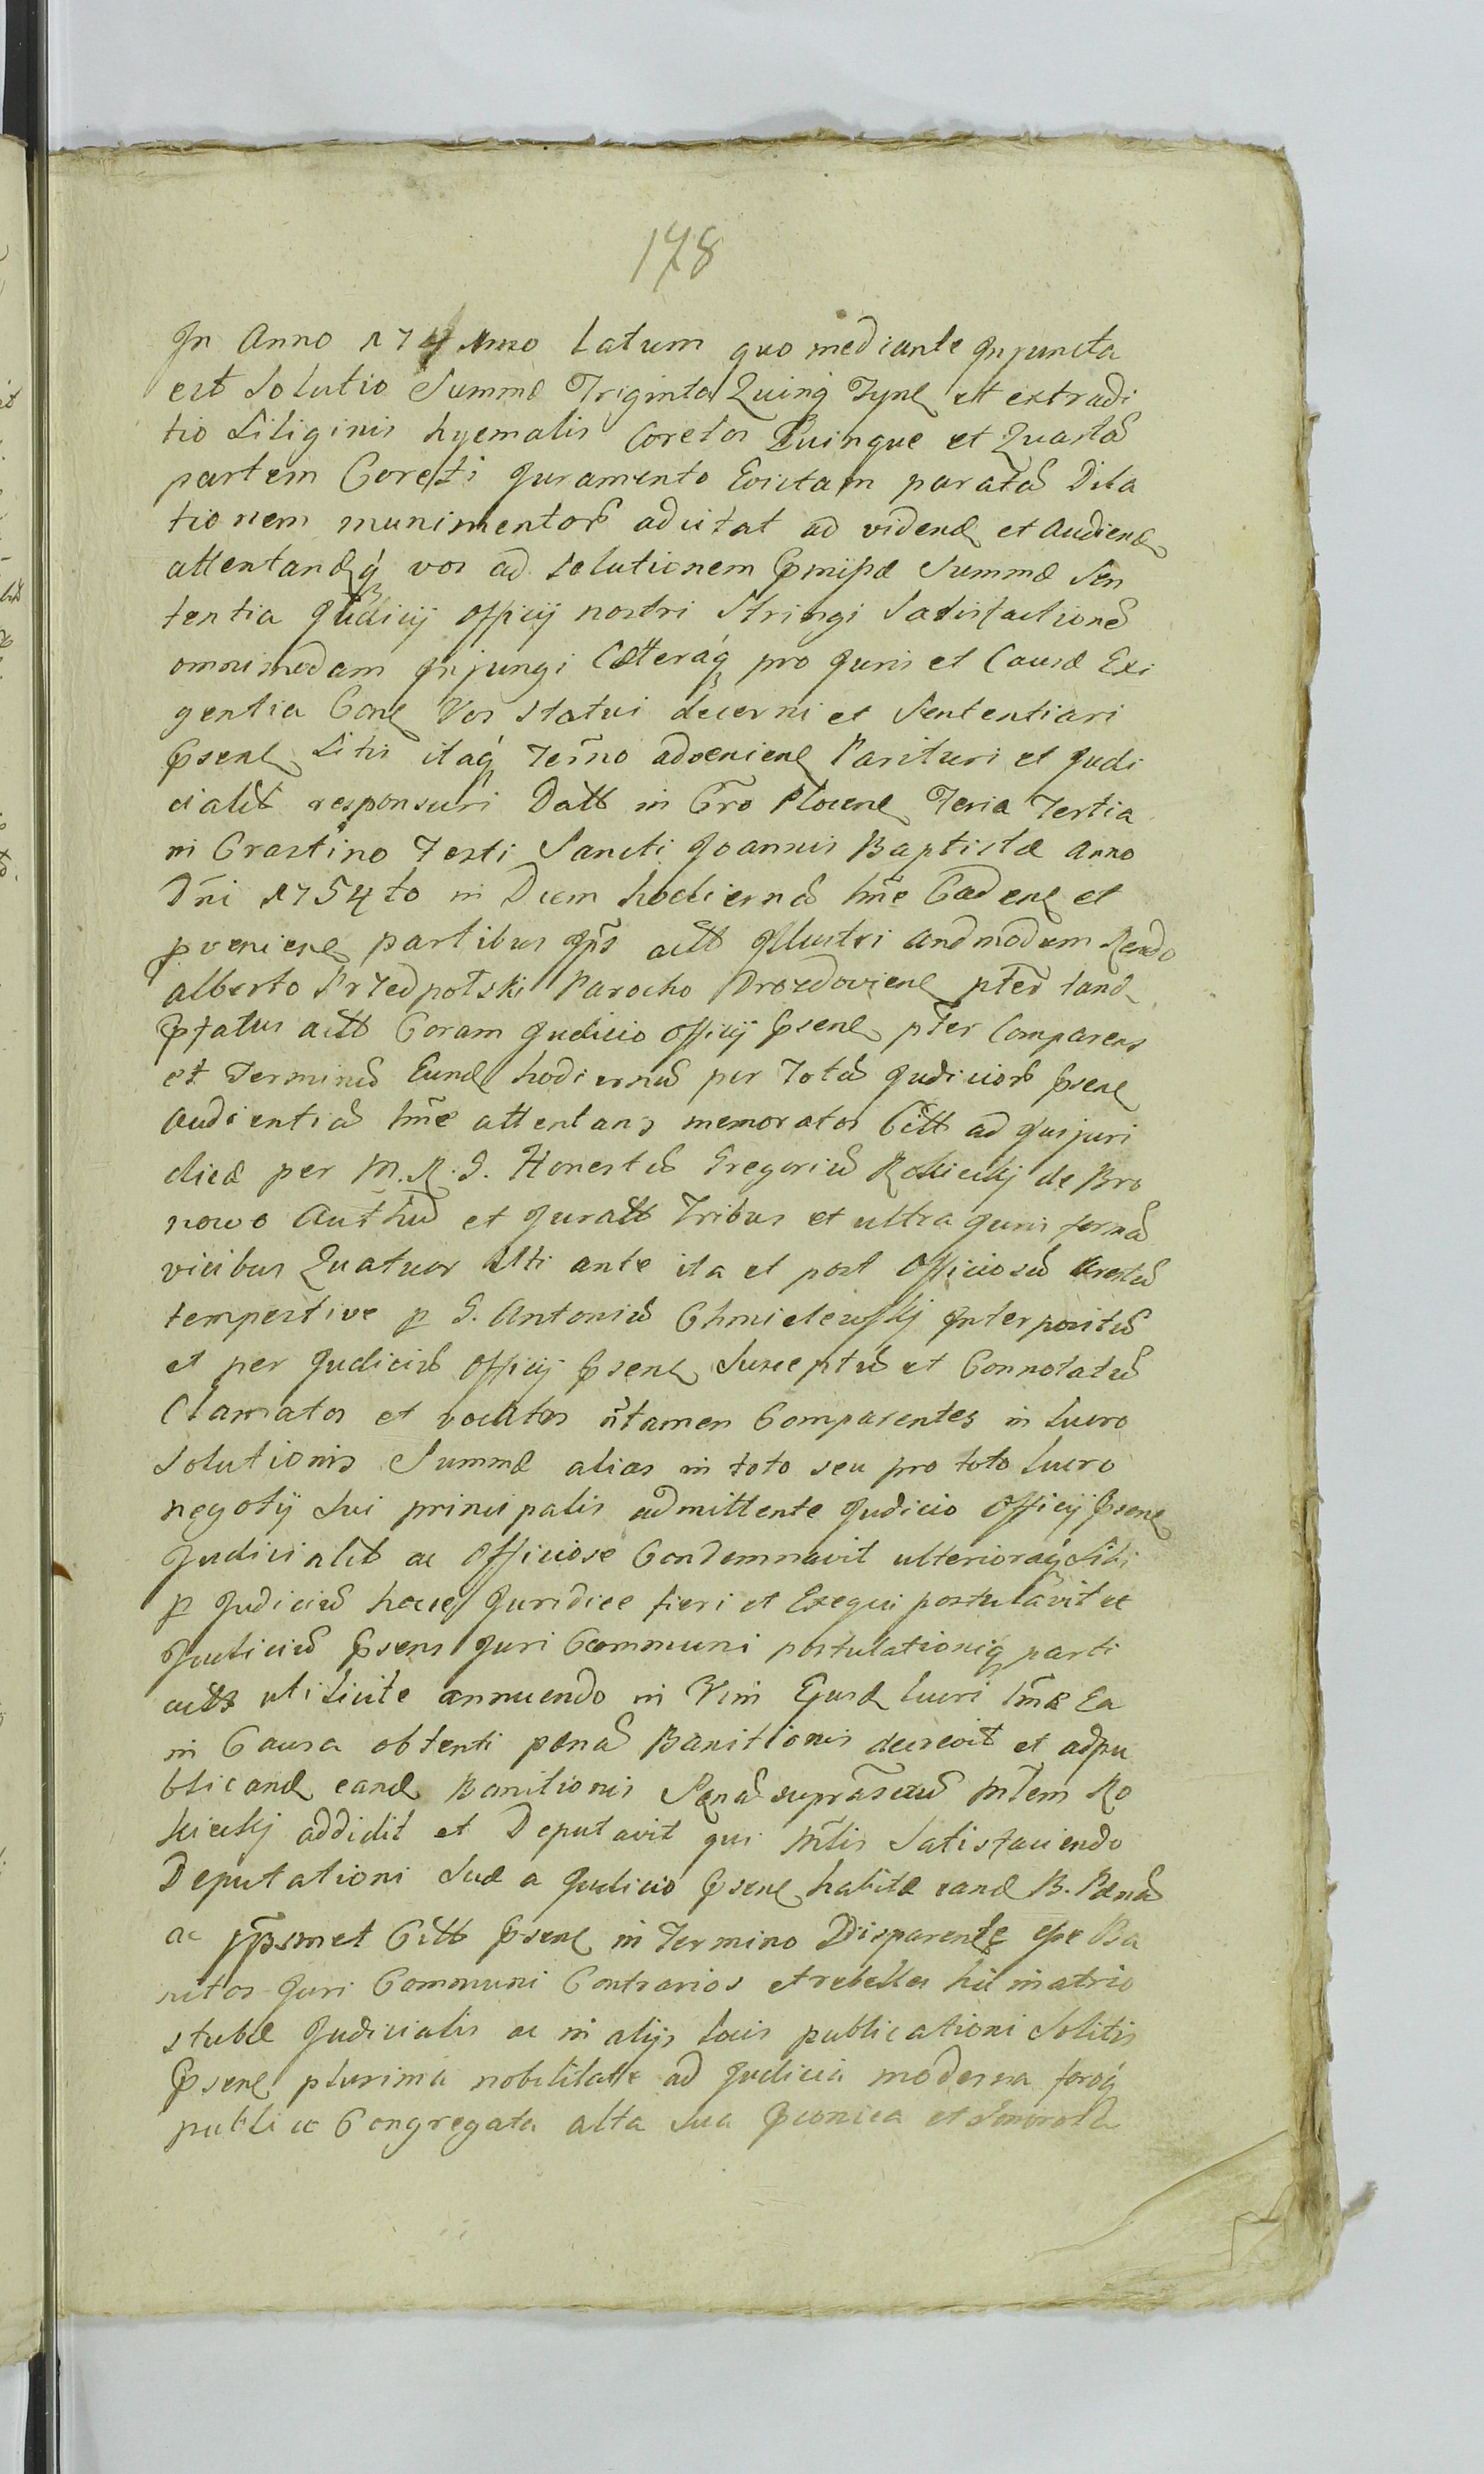 178
In Anno 174 mo Latum quo mediante Injuncta
est Solutio Summæ Triginta Quinq Tynf et extradi
tio Siliginis hyemalis Coretos Quinque et Quartã
partem Coreti Juramento Evictam paratã Dila
tionem munimentor adcitat ad videnđ et Audienđ
attentanđq vos ad Solutionem Præmissæ Summæ Sen
tentia Judicij Officij nostri Stringi Satisfactionẽ
omnimodam Injungi Cæteraq pro Juris et Causæ Exi
gentia Conł Vos Statui decerni et Sententiari
Præsenł Litis itaq Termno advenienł Parituri et Judi
cialit responsuri Datt in Cro Plocenł Feria Tertia
in Crastino Festi Sancti Joannis Baptistæ Anno
Dni 1754to in Diem hodiernũ lme Cadenł et
pvenienł partibus Ips actt Illustri Andmodum Rendo
Alberto Przedpołski Parocho Drozdovienł pter tanđ
Præfatus actt Coram Judicio Officij Præsenł pter Comparens
et Terminũ Eunđ hodiernũ per Totã Judicior Præsenł
Audientiã lme attentans memoratos Citt ad Jusjuri
dicæ per M. R. G. Honestũ Gregoriũ Rokicki de Bro
nowo Authũ et Juratt Tribus et ultra Juris formã
vicibus Quatuor Alti ante ita et post Officiosũ Arestũ
tempestive p G. Antoniũ Chmielewskj Interpositũ
et per Judiciũ Officij Præsenł Susceptũ et Connotatũ
Clamatos et vocatos ntamen Comparentes in Lucro
Solutionis Summæ alias in toto seu pro toto Lucro
negotij Sui principalis admittente Judicio Officij Præsenł
Judicialit ac Officiose Condemnavit ulterioraq Sibi
p Judiciũ hocce Juridice fieri et Exequi postulavit et
Judiciũ Præsens Juri Communi postulationiq parti
actt uti Licite annuendo in Vim Ejusđ Lucri lme Ea
in Causa obtenti pænã Banitionis decrevit et adpu
blicanđ eanđ Banitionis Pænã suprascriũ Mtem Ro
kickj addidit et Deputavit qui Mtlis Satisfaciendo
Deputationi Suæ a Judicio Præsenł habitæ eanđ B. Pænã
ac Ipsmet Citt Præsenł in Termino Ddisparente esse Ba
nitos Juri Communi Contrarios et rebelles hic in atrio
stubæ Judicialis ac in alijs Locis publicationi Solitis
Præsenł plurima nobilitate ad Judicia moderna foroq
publice Congregata alta Sua Præconica et Sonorosa